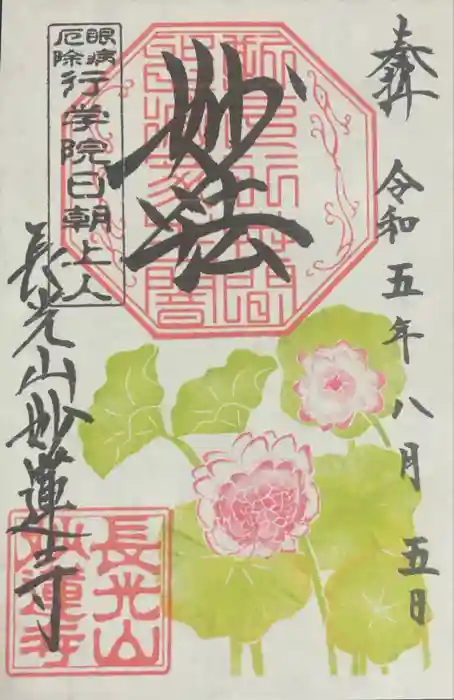 奉拝
令和五年八月五日
妙法
眼病
厄除
行学院日朝上人
長光山妙蓮寺
長光山
妙蓮寺